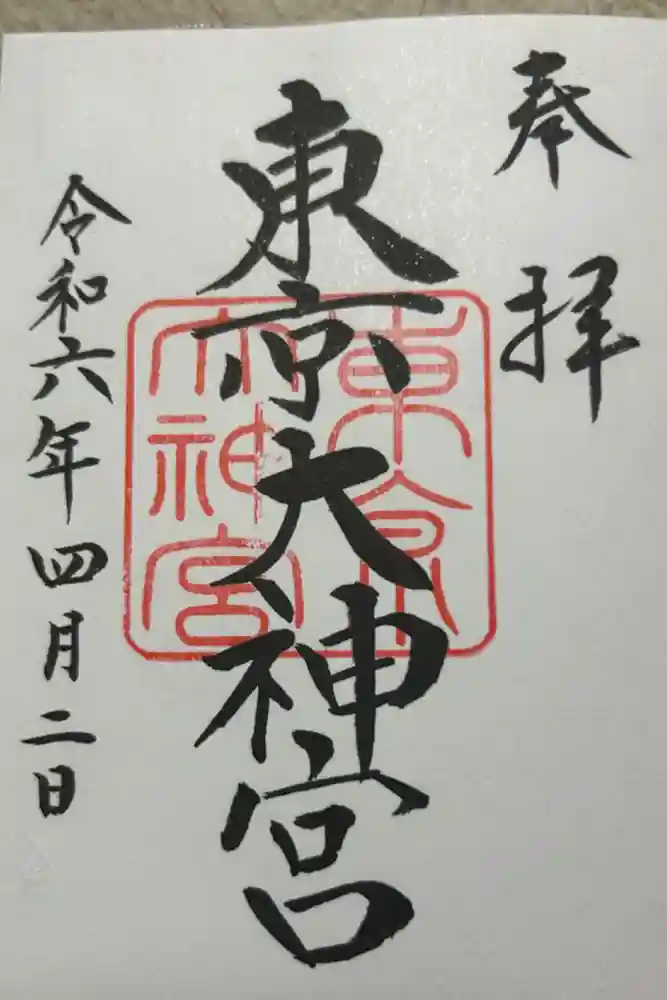 奉拝
東京大神宮
東京大神宮
令和六年四月二日